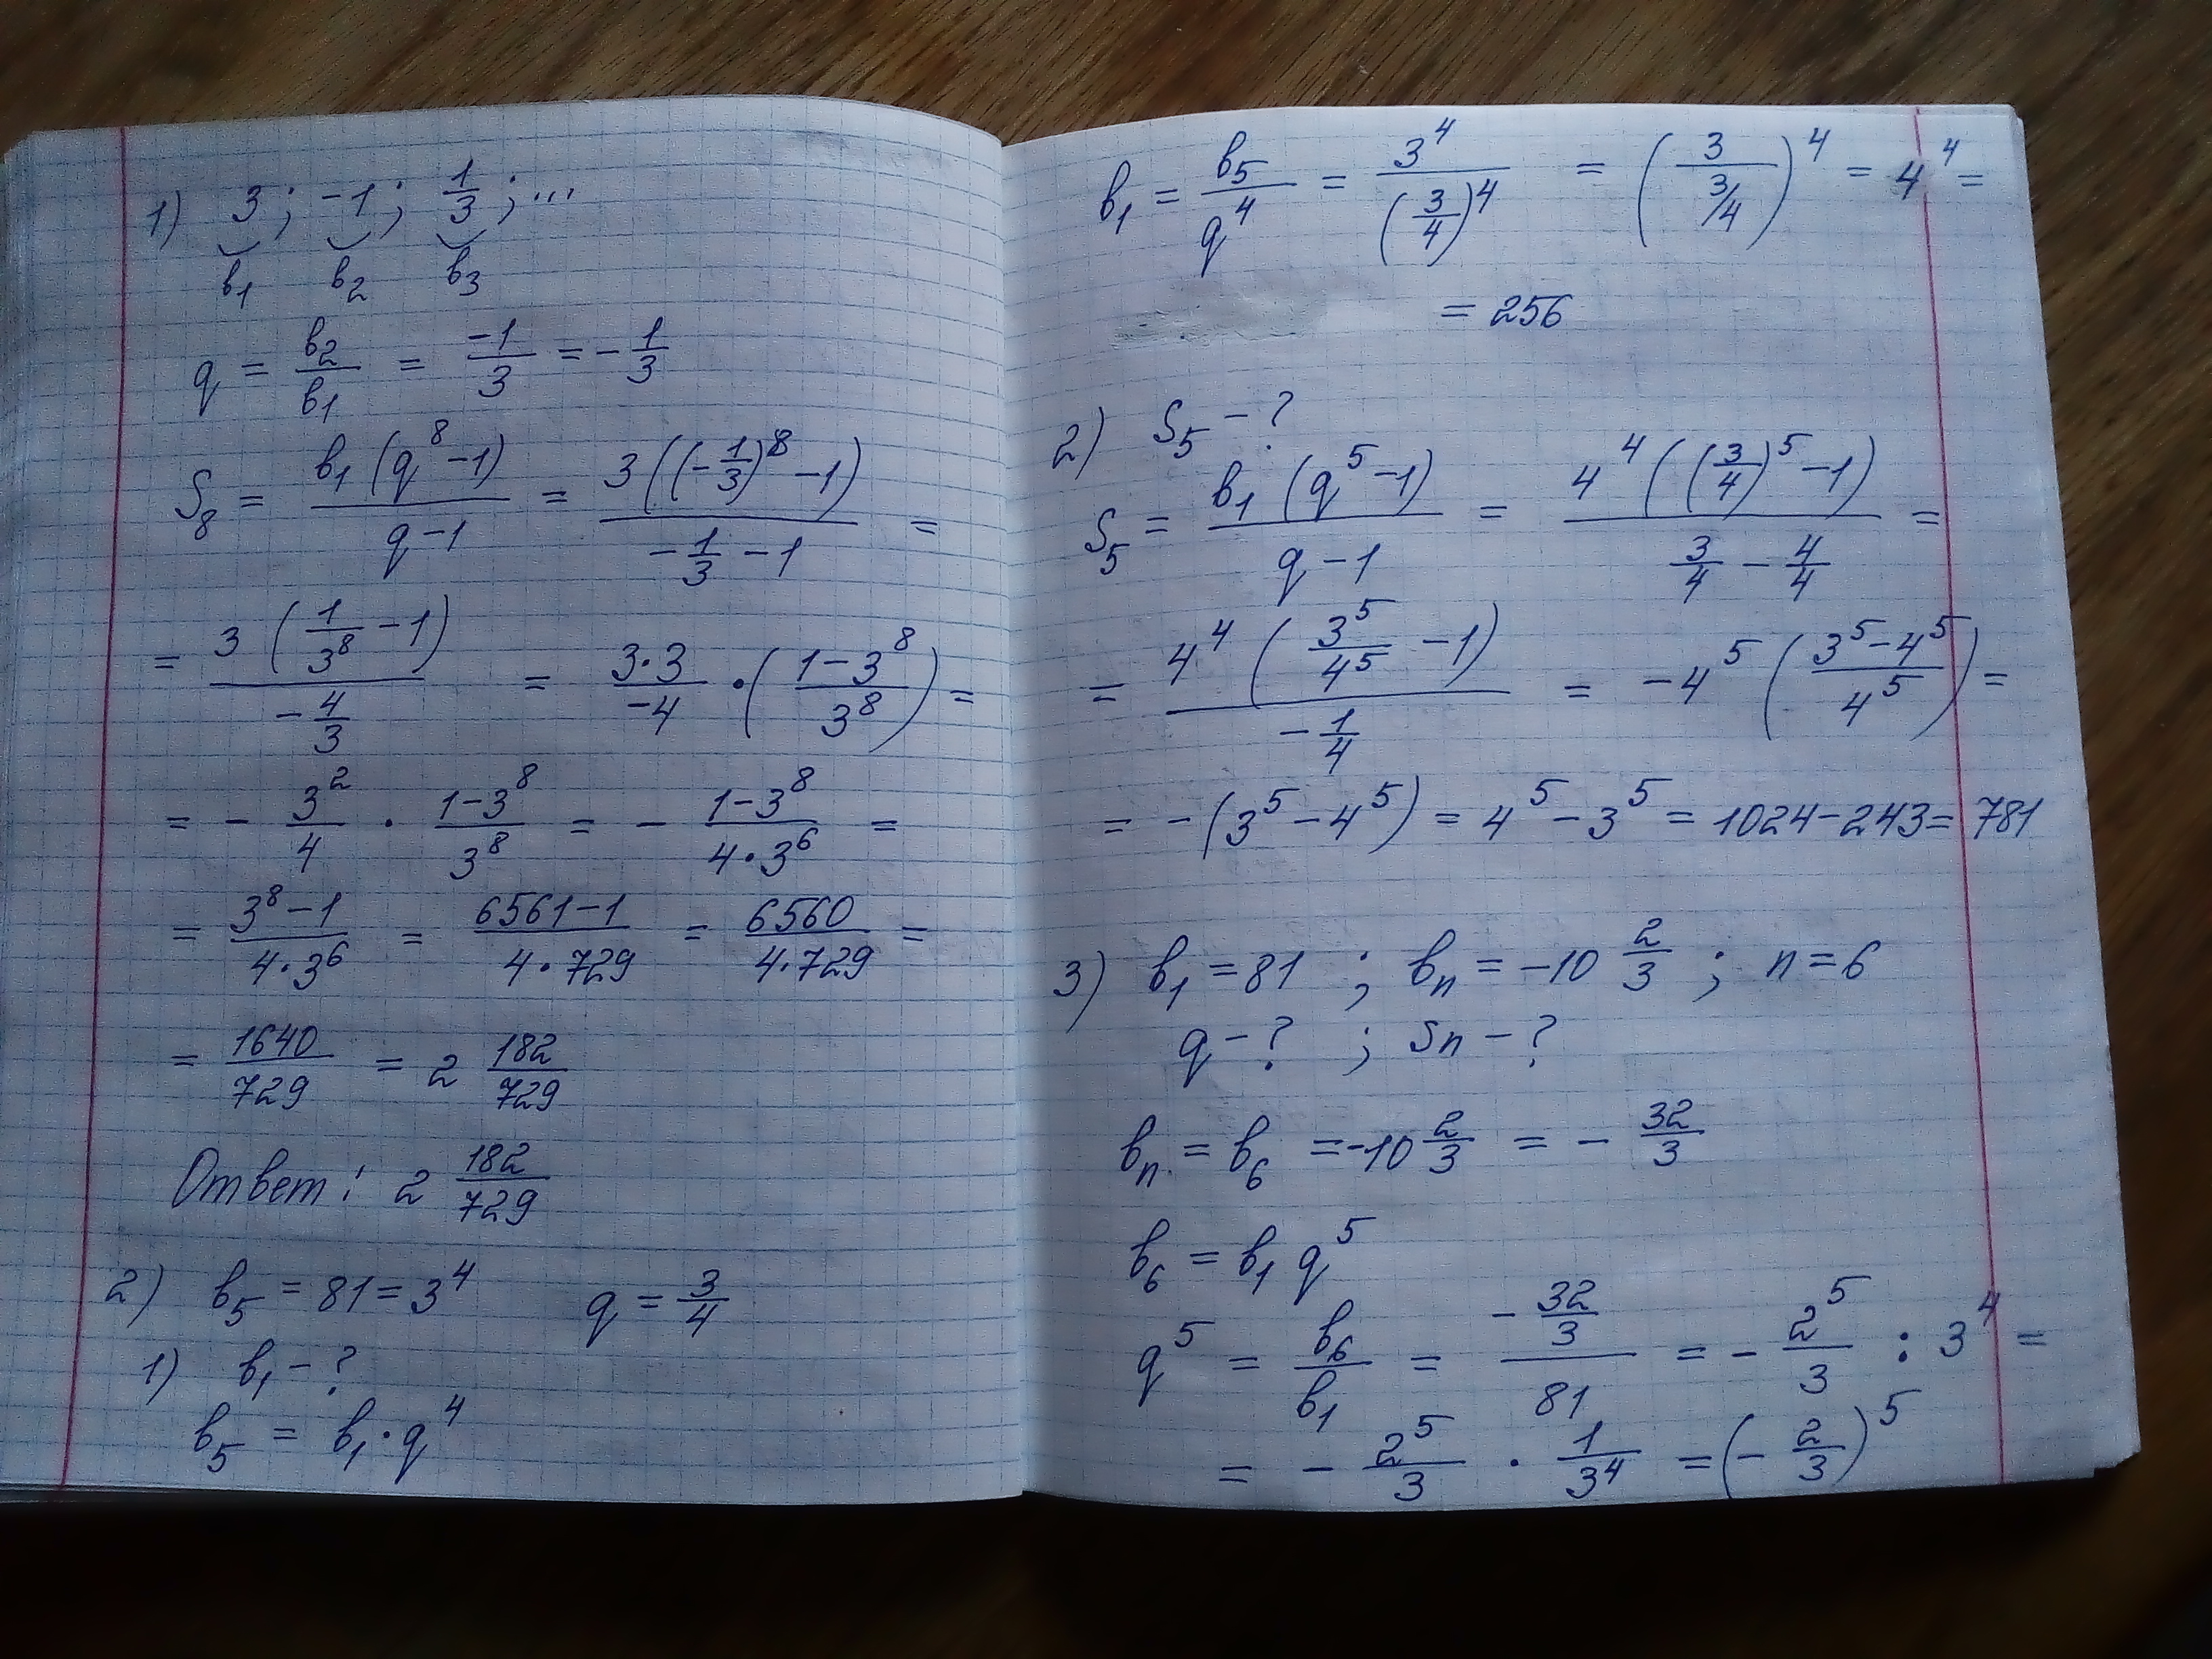 1) 3; -1; 1/3; ...
b₁ b₂ b₃
q = b₂/b₁ = -1/3 = -1/3
S₈ = b₁(q⁸-1)/(q-1) = 3((-1/3)⁸-1)/(-1/3-1) =
= 3(1/3⁸-1)/(-4/3) = 3·3/-4 · ((1-3⁸)/3⁸) =
= - 3²/4 · (1-3⁸)/3⁸ = - (1-3⁸)/(4·3⁶) =
= (3⁸-1)/(4·3⁶) = (6561-1)/(4·729) = 6560/(4·729) =
= 1640/729 = 2 182/729
Ответ: 2 182/729
2) b₅ = 81 = 3⁴ q = 3/4
1) b₁ - ?
b₅ = b₁·q⁴
b₁ = b₅/q⁴ = 3⁴/(3/4)⁴ = (3/(3/4))⁴ = 4⁴ =
= 256
2) S₅ - ?
S₅ = b₁(q⁵-1)/(q-1) = 4⁴((3/4)⁵-1)/(3/4-4/4) =
= 4⁴(3⁵/4⁵-1)/(-1/4) = -4⁵((3⁵-4⁵)/4⁵) =
= -(3⁵-4⁵) = 4⁵-3⁵ = 1024-243 = 781
3) b₁ = 81 ; bₙ = -10 2/3 ; n = 6
q - ? ; Sn - ?
bₙ = b₆ = -10 2/3 = - 32/3
b₆ = b₁ q⁵
q⁵ = b₆/b₁ = (-32/3)/81 = - 2⁵/3 : 3⁴ =
= - 2⁵/3 · 1/3⁴ = (- 2/3)⁵